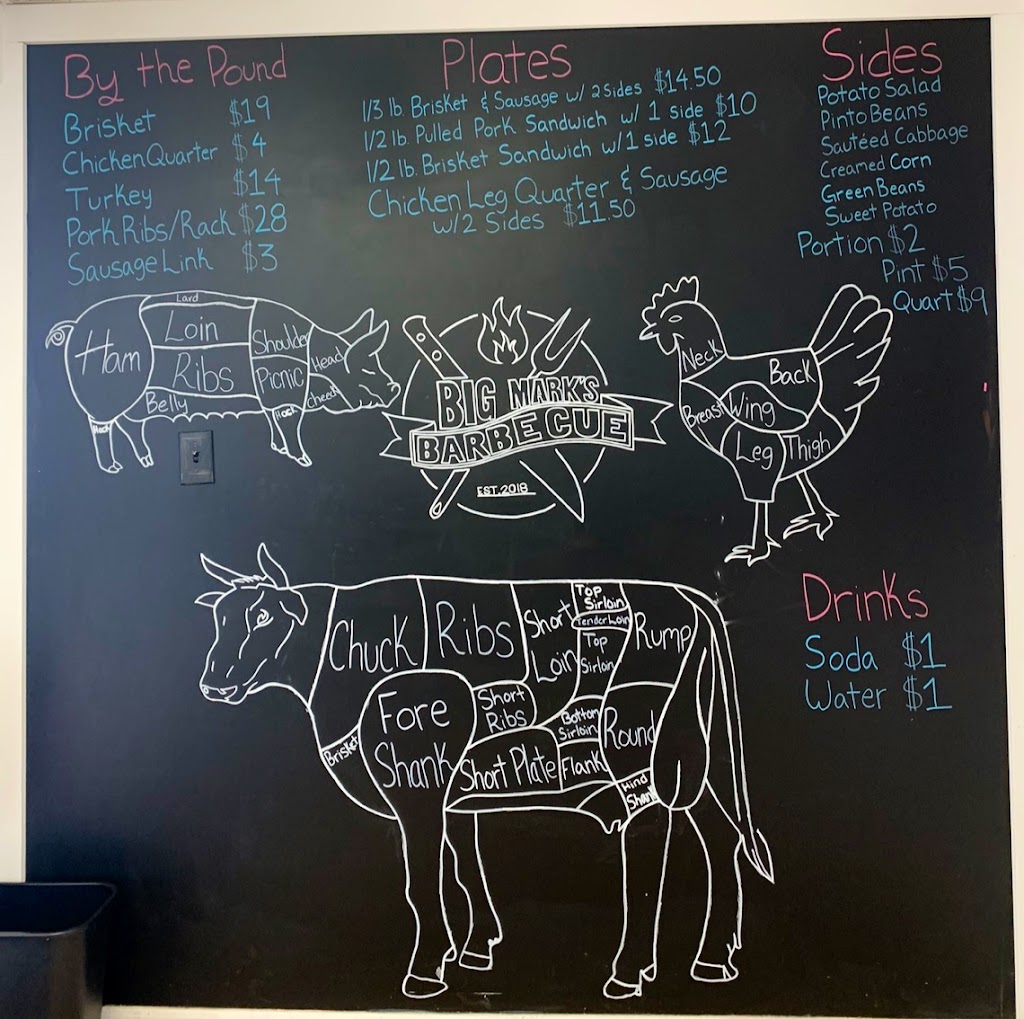 By the Pound
Brisket $19
Chicken Quarter $4
Turkey $14
Pork Ribs/Rack $28
Sausage Link $3
Plates
1/3 lb. Brisket & Sausage w/ 2 sides $14.50
1/2 lb. Pulled Pork Sandwich w/ 1 side $10
1/2 lb. Brisket Sandwich w/ 1 side $12
Chicken Leg Quarter & Sausage
w/2 Sides $11.50
Sides
Potato Salad
Pinto Beans
Sautéed Cabbage
Creamed Corn
Green Beans
Sweet Potato
Portion $2
Pint $5
Quart $9
Lard
Ham
Loin
Ribs
Belly
Shoulder
Picnic
Head
Cheek
Hock
Hock
BIG MARK'S
BARBECUE
EST. 2018
Neck
Back
Breast
Wing
Leg
Thigh
Chuck
Ribs
Short
Loin
Top
Sirloin
Tenderloin
Top
Sirloin
Rump
Fore
Shank
Short
Ribs
Bottom
Sirloin
Round
Brisket
Short Plate
Flank
Hind
Shank
Drinks
Soda $1
Water $1